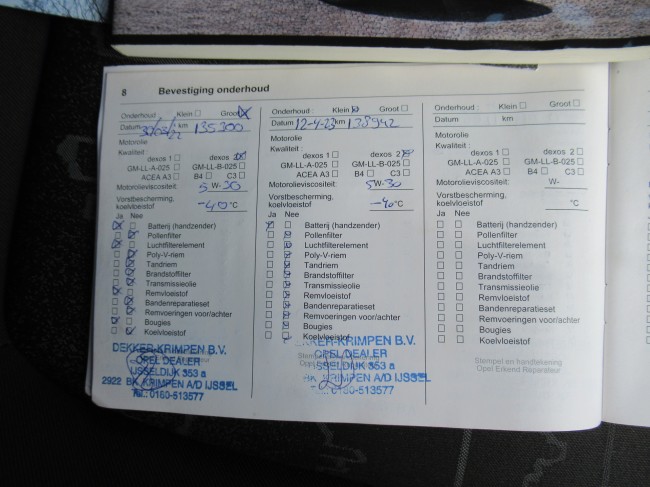 8 Bevestiging onderhoud
Onderhoud : Klein Groot
Datum km 135300
Motorolie
Kwaliteit : dexos 1 dexos 2
GM-LL-A-025 GM-LL-B-025
ACEA A3 B4 C3
Motorolieviscositeit: 5 W- 30
Vorstbescherming,
koelvloeistof -40 °C
Ja Nee
Batterij (handzender)
Pollenfilter
Luchtfilterelement
Poly-V-riem
Tandriem
Brandstoffilter
Transmissieolie
Remvloeistof
Bandenreparatieset
Remvoeringen voor/achter
Bougies
Koelvloeistof
DEKKER-KRIMPEN B.V.
OPEL DEALER
IJSSELDIJK 353 a
2922 BK KRIMPEN A/D IJSSEL
Tel.: 0180-513577
Onderhoud : Klein Groot
Datum 12-4-23 km 138942
Motorolie
Kwaliteit : dexos 1 dexos 2
GM-LL-A-025 GM-LL-B-025
ACEA A3 B4 C3
Motorolieviscositeit: 5 W-30
Vorstbescherming,
koelvloeistof -40 °C
Ja Nee
Batterij (handzender)
Pollenfilter
Luchtfilterelement
Poly-V-riem
Tandriem
Brandstoffilter
Transmissieolie
Remvloeistof
Bandenreparatieset
Remvoeringen voor/achter
Bougies
Koelvloeistof
KRIMPEN B.V.
OPEL DEALER
IJSSELDIJK 353 a
BK KRIMPEN A/D IJSSEL
Tel.: 0180-513577
Onderhoud : Klein Groot
Datum km
Motorolie
Kwaliteit : dexos 1 dexos 2
GM-LL-A-025 GM-LL-B-025
ACEA A3 B4 C3
Motorolieviscositeit: W-
Vorstbescherming,
koelvloeistof °C
Ja Nee
Batterij (handzender)
Pollenfilter
Luchtfilterelement
Poly-V-riem
Tandriem
Brandstoffilter
Transmissieolie
Remvloeistof
Bandenreparatieset
Remvoeringen voor/achter
Bougies
Koelvloeistof
Stempel en handtekening
Opel Erkend Reparateur